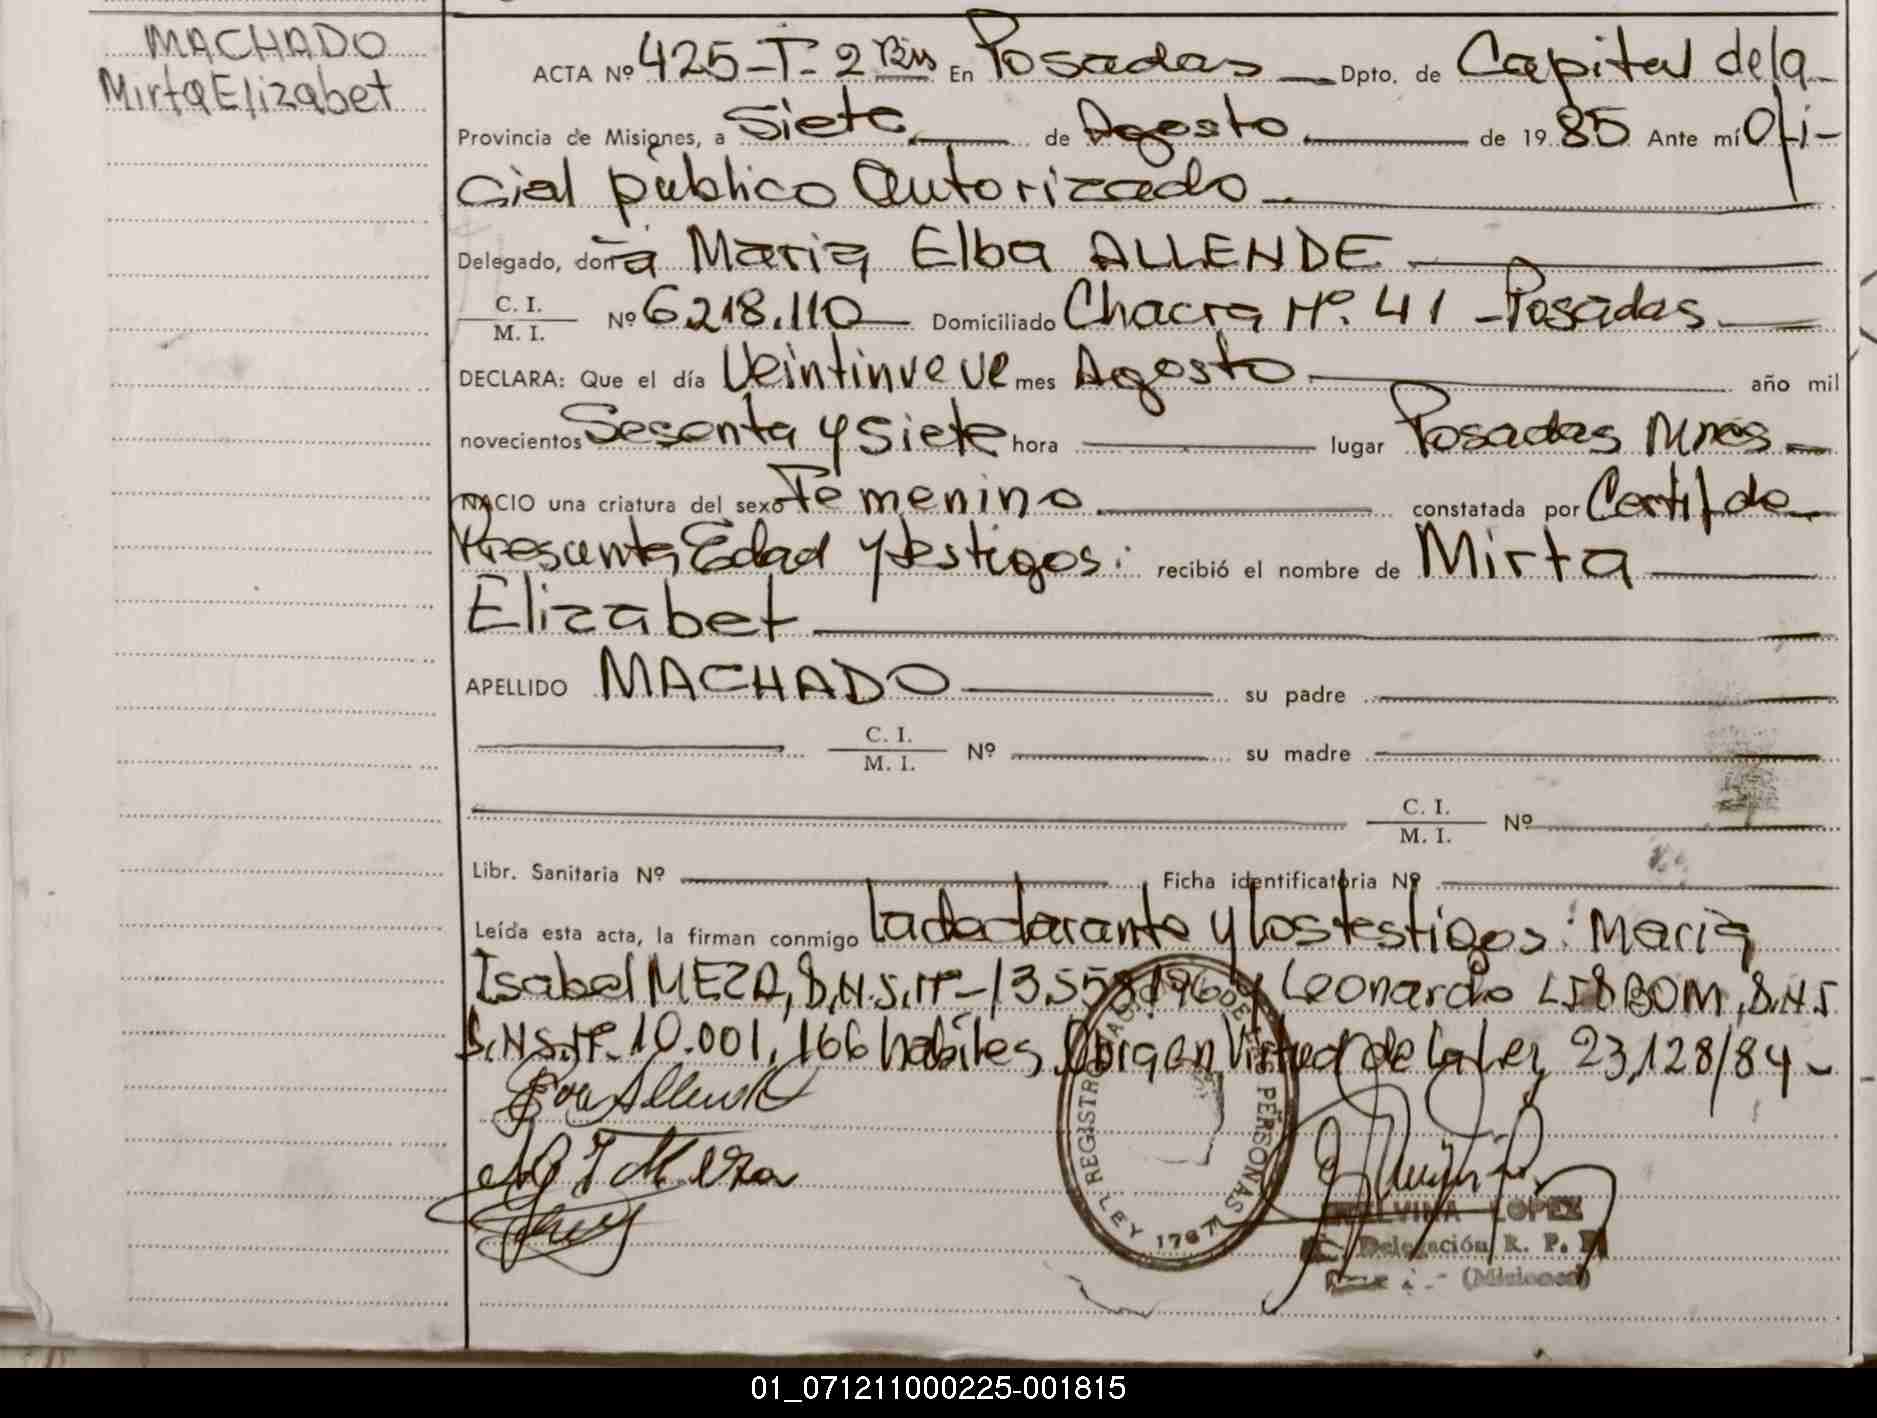 MACHADO
Mirta Elizabet
ACTA Nº 425-T-2 Bis En Posadas Dpto. de Capital de la
Provincia de Misiones, a Siete de Agosto de 1985 Ante mí Ofi-
cial público Autorizado
Delegado, doña Maria Elba ALLENDE
C. I.
M. I. Nº 6.218.110 Domiciliado Chacra Nº. 41 - Posadas
DECLARA: Que el día Veintinveve mes Agosto año mil
novecientos Sesenta y Siete hora lugar Posadas Mnes
NACIO una criatura del sexo Femenino constatada por Certif de
Presunta Edad y testigos: recibió el nombre de Mirta
Elizabet
APELLIDO MACHADO su padre
C. I.
M. I. Nº su madre
C. I.
M. I. Nº
Libr. Sanitaria Nº Ficha identificatoria Nº
Leída esta acta, la firman conmigo la declarante y los testigos: Maria
Isabel MEZA, D.N.S.Nº- 13.558.196 y Leonardo D.N.S
D.N.S.Nº. 10.001.166 habiles Obra en Virtud de la Ley 23,128/84
REGISTRO DE LAS PERSONAS
LEY 1767
ELVINA LOPEZ
Delegación R. P.
(Misiones)
01_071211000225-001815